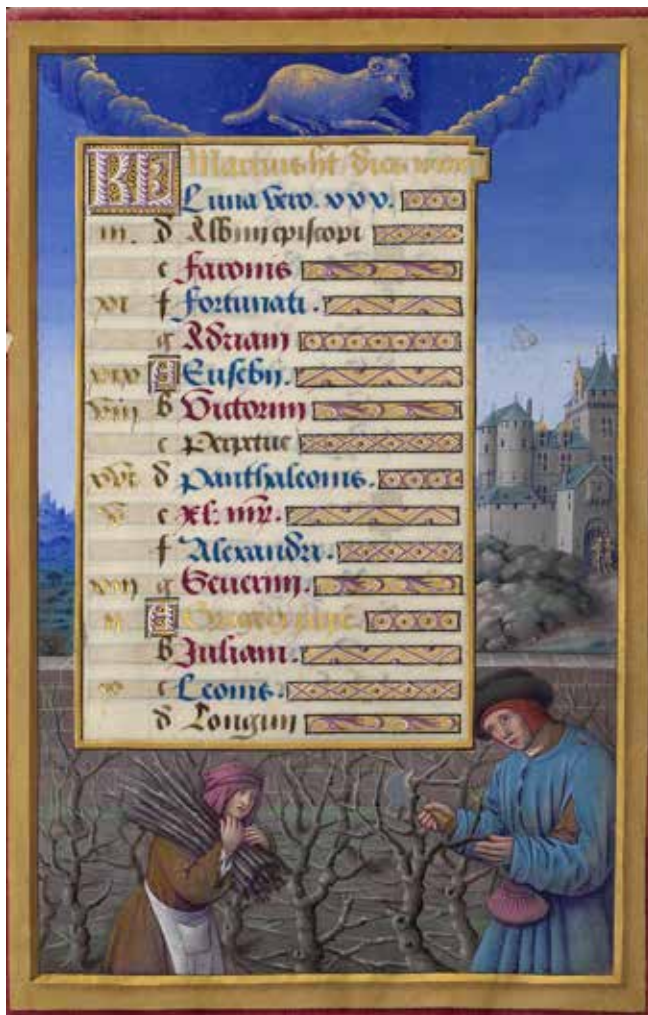 KL Martius ht dies xxxi
Luna vero. xxx.
iii. d Albini episcopi
e faronis
xi f fortunati.
g Adriani
xix A Eusebii.
viii b Victorini
c perpetue
xvi d panthaleonis.
v e xl. mr.
f Alexandri.
xiii g Severini.
ii A Gregorii pape.
b Juliani.
x c Leonis.
d Longini